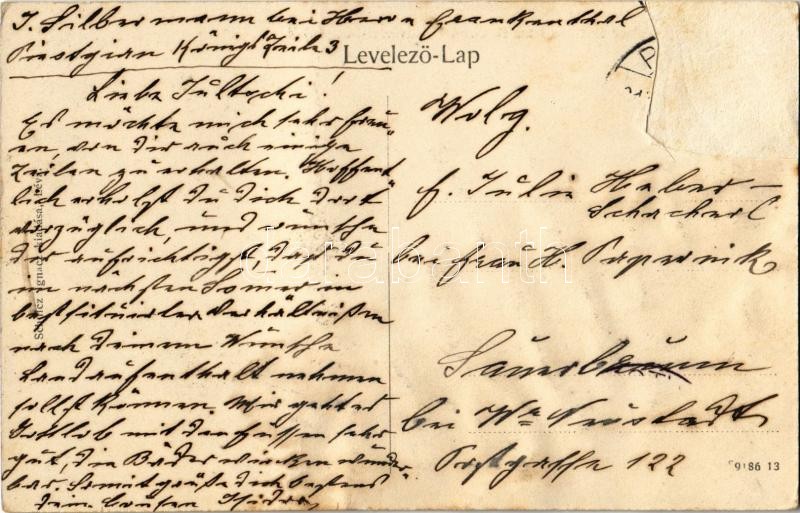 J. Silbermann bei Herrn Frankenthal
Piestyian Königs Zeile 3
Levelező-Lap
Liebe Jultschi!
Es möchte mich sehr freu-
en, von dir auch einige
Zeilen zu erhalten. Hoffent-
lich erholst du dich dort
vorzüglich, und wünsche
dir aufrichtigst, daß du
im nächsten Somer in
bestsituirter Verhältnißen
nach deinem Wünsche
Landaufenthalt nehmen
sollst können. Mir geht es
Gottlob mit den Füssen sehr
gut, die Bäder wirken wunder-
bar. Somit grüße dich bestens
dein Cousen Isidor
Wolg.
F. Julie Haber-
Schacherl
bei Frau H. Papernik
Sauerbrunn
bei Wr Neustadt
Postgasse 122
Ignácz kiadása, Léva
9186 13
darabanth